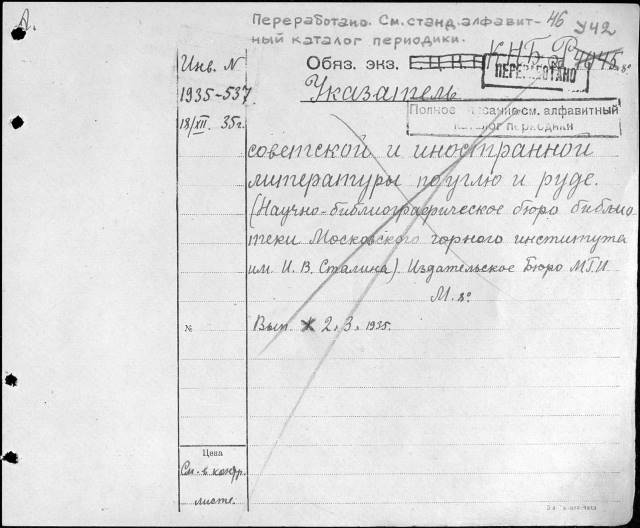 А.
Переработано. См. станд. алфавит-
ный каталог периодики.
46 У42
Обяз. экз. К.Н.Б. Р
8°
ПЕРЕРАБОТАНО
Инв. N
1935-537
18/XII. 35г.
Указатель
Полное описание см. алфавитный
каталог периодики
советской и иностранной
литературы по углю и руде.
(Научно-библиографическое бюро библио
теки Московского горного института
им. И. В. Сталина). Издательское Бюро МГИ
М. 8°
№ Вып. 2, 3, 1935.
Цена
См. в контр.
листе.